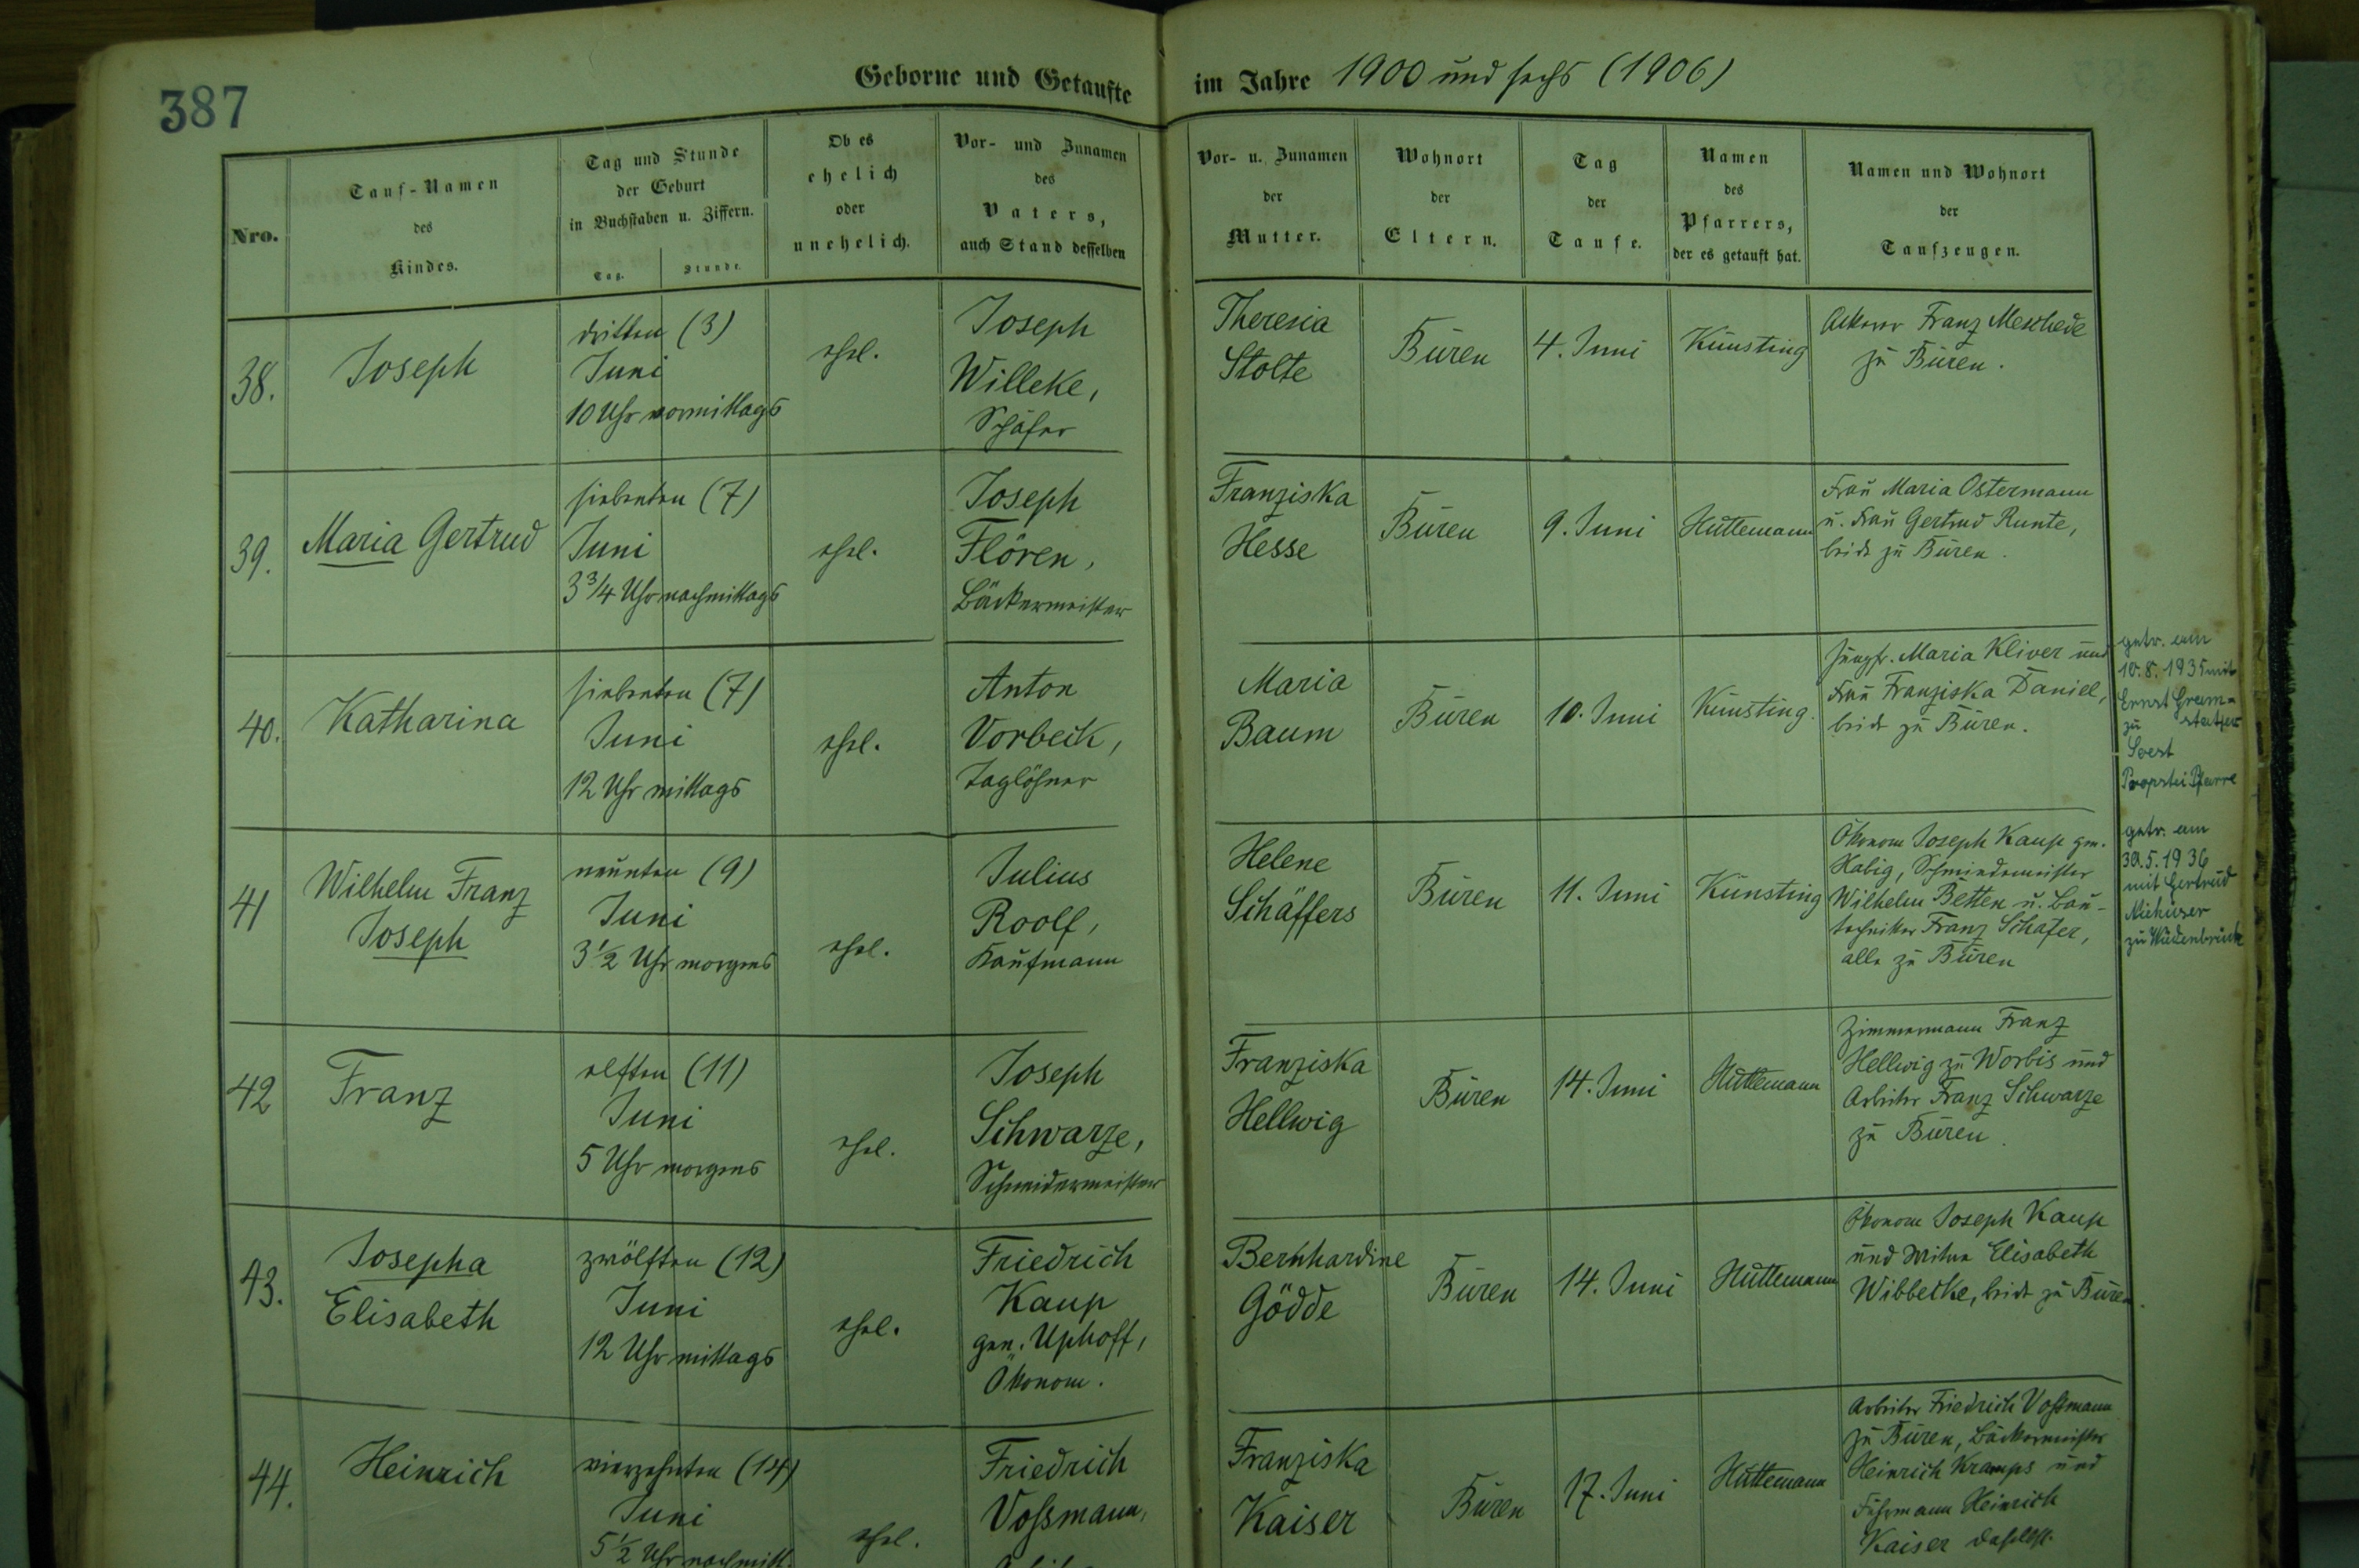 387
Geborne und Getaufte im Jahre 1900 und sechs (1906)
Nro.
Tauf-Namen
des
Kindes.
Tag und Stunde
der Geburt
in Buchstaben u. Ziffern.
Tag.
Stunde.
Ob es
ehelich
oder
unehelich.
Vor- und Zunamen
des
Vaters,
auch Stand desselben
Vor- u. Zunamen
der
Mutter.
Wohnort
der
Eltern.
Tag
der
Taufe.
Namen
des
Pfarrers,
der es getauft hat.
Namen und Wohnort
der
Taufzeugen.
38.
Joseph
dritten (3)
Juni
10 Uhr vormittags
ehel.
Joseph
Willeke,
Schäfer
Theresia
Stolte
Büren
4. Juni
Künsting
Ackerer Franz Meschede
zu Büren.
39.
Maria Gertrud
siebenten (7)
Juni
3 3/4 Uhr nachmittags
ehel.
Joseph
Flören,
Bäckermeister
Franziska
Hesse
Büren
9. Juni
Hüttemann
Frau Maria Ostermann
u. Frau Gertrud Runte,
beide zu Büren.
40.
Katharina
siebenten (7)
Juni
12 Uhr mittags
ehel.
Anton
Vorbeck,
Taglöhner
Maria
Baum
Büren
10. Juni
Künsting.
Jungfr. Maria Kliver und
Frau Franziska Daniel,
beide zu Büren.
getr. am
10.8.1935 mit
Ernst
zu
Soest
Propstei Pfarre
41
Wilhelm Franz
Joseph
neunten (9)
Juni
3 1/2 Uhr morgens
ehel.
Julius
Roolf,
Kaufmann
Helene
Schäffers
Büren
11. Juni
Künsting
Ökonom Joseph Kaup gen.
Habig, Schmiedemeister
Wilhelm Betten u. Bau-
techniker Franz Schäfer,
alle zu Büren
getr. am
30.5.1936
mit Gertrud
Niehüser
zu Wiedenbrück
42
Franz
elften (11)
Juni
5 Uhr morgens
ehel.
Joseph
Schwarze,
Schneidermeister
Franziska
Hellwig
Büren
14. Juni
Hüttemann
Zimmermann Franz
Hellwig zu Worbis und
Arbeiter Franz Schwarze
zu Büren.
43.
Josepha
Elisabeth
zwölften (12)
Juni
12 Uhr mittags
ehel.
Friedrich
Kaup
gen. Uphoff,
Ökonom.
Bernhardine
Gödde
Büren
14. Juni
Hüttemann
Ökonom Joseph Kaup
und Witwe Elisabeth
Wibbeke, beide zu Büren.
44.
Heinrich
vierzehnten (14)
Juni
5 1/2 Uhr nachmitt.
ehel.
Friedrich
Voßmann,
Franziska
Kaiser
Büren
17. Juni
Hüttemann
Arbeiter Friedrich Voßmann
zu Büren, Bäckermeister
Heinrich Kramps und
Fuhrmann Heinrich
Kaiser daselbst.